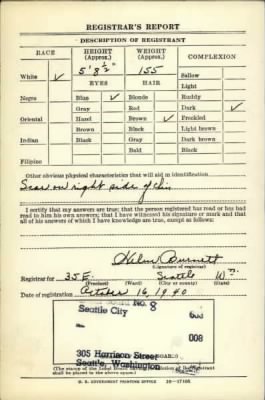 REGISTRAR'S REPORT
DESCRIPTION OF REGISTRANT
RACE
HEIGHT (Approx.)
WEIGHT (Approx.)
COMPLEXION
White ✓
5' 8½"
155
Sallow
EYES
HAIR
Light
Negro
Blue ✓
Blonde
Ruddy
Gray
Red
Dark ✓
Oriental
Hazel
Brown ✓
Freckled
Brown
Black
Light brown
Indian
Black
Gray
Dark brown
Bald
Black
Filipino
Other obvious physical characteristics that will aid in identification
Scar on right side of chin
I certify that my answers are true; that the person registered has read or has had
read to him his own answers; that I have witnessed his signature or mark and that
all of his answers of which I have knowledge are true, except as follows:
Helen Burnett
(Signature of registrar)
Registrar for 35 E. Seattle Wn.
(Precinct) (Ward) (City or county) (State)
Date of registration October 16, 1940
BOARD No. 8
Seattle City
008
305 Harrison Street
Seattle, Washington
(The stamp of the Local Board having jurisdiction of the registrant
shall be placed in the above space.)
U. S. GOVERNMENT PRINTING OFFICE 16—17105